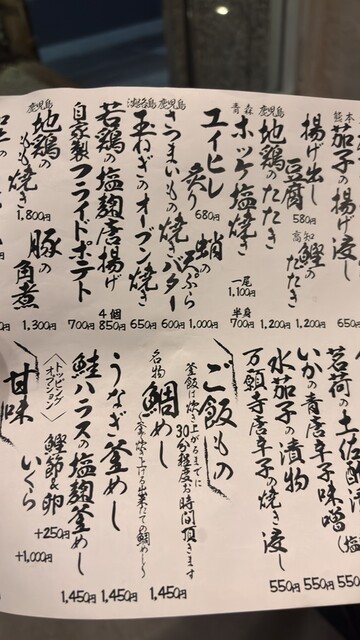 熊本
茄子の揚げ浸し
650
揚げ出し豆腐
580円
高知
鰹のたたき
1,200円
鹿児島
地鶏のたたき
1,200円
青森
ホッケ塩焼き
一尾
1,100円
半身
700円
エイヒレ炙り
680円
蛸の天ぷら
1,000円
鹿児島
さつまいもの焼きバター
600円
淡路島
玉ねぎのオーブン焼き
650円
若鶏の塩麹唐揚げ
4個
850円
自家製フライドポテト
700円
鹿児島
地鶏のもも焼き
1,800円
豚の角煮
1,300円
茗荷の土佐酢漬
550
いかの青唐辛子味噌
(塩
550円
水茄子の漬物
550円
万願寺唐辛子の焼き浸し
550円
ご飯もの
釜飯は炊き上がるまでに
30分程度お時間頂きます
名物
鯛めし
1,450円
うなぎ釜めし
1,450円
鮭ハラスの塩麹釜めし
1,450円
〈トッピングオプション〉
鰹節&卵
+250円
いくら
+1,000円
甘味